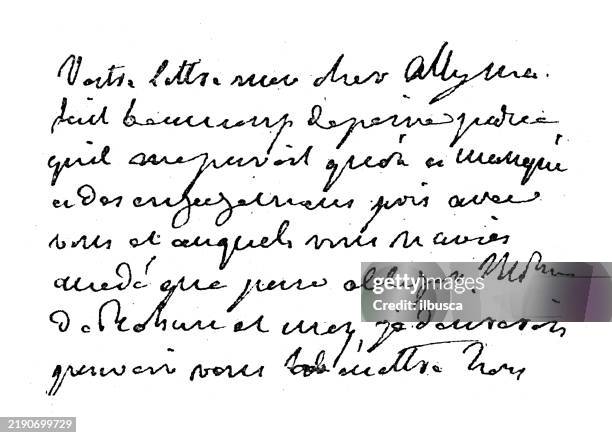 Vostre lettre mon cher Ally ma
fait beaucoup de peine parce
qu'il me paroit qu'on a manqué
a des engagemens pris avec
vous et auquels vous n'aviés
cedé que pour obliger Mde
de Rohan et moy, je
pouvoir vous mettre hors
gettyimages
Credit: ilbusca
2190699729